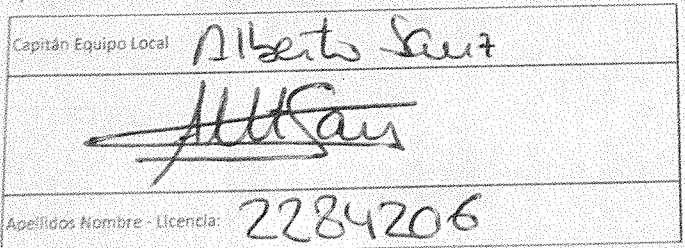 Capitán Equipo Local Alberto Sanz
Apellidos Nombre - Licencia: 2284206